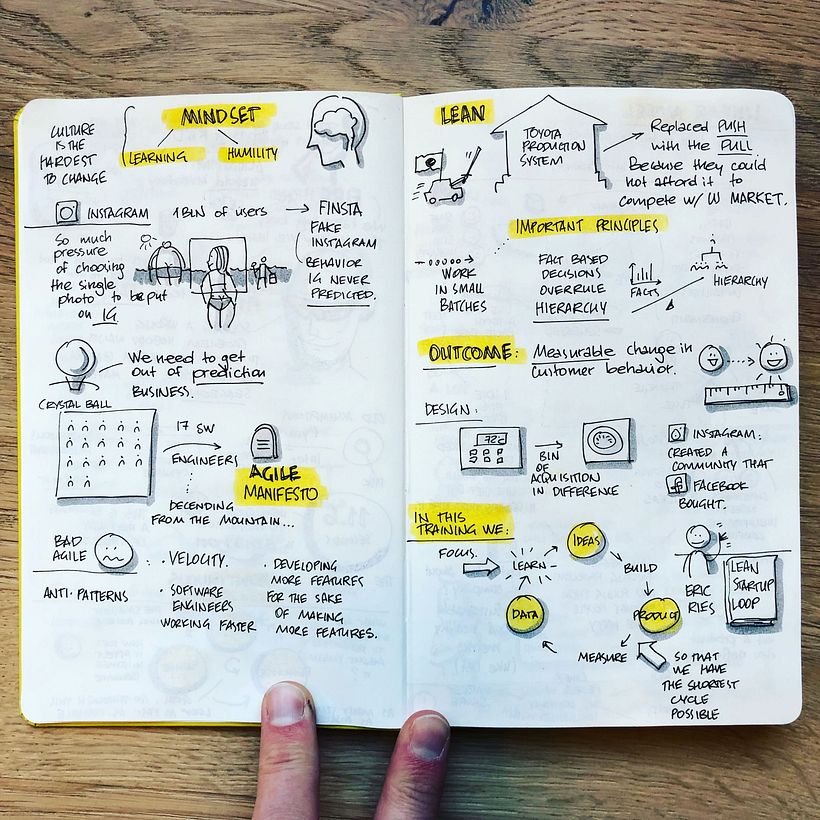 CULTURE
IS THE
HARDEST
TO CHANGE
MINDSET
LEARNING
HUMILITY
INSTAGRAM
1 BLN of users
FINSTA
FAKE
INSTAGRAM
BEHAVIOR
IG NEVER
PREDICTED.
So much
pressure
of choosing
the single
photo to be put
on IG.
We need to get
out of prediction
BUSINESS.
CRYSTAL BALL
17 SW
ENGINEERS
AGILE
MANIFESTO
DECENDING
FROM THE MOUNTAIN...
BAD
AGILE
ANTI-PATTERNS
• VELOCITY.
• SOFTWARE
ENGINEERS
WORKING FASTER
• DEVELOPING
MORE FEATURES
FOR THE SAKE
OF MAKING
MORE FEATURES.
LEAN
TOYOTA
PRODUCTION
SYSTEM
Replaced PUSH
with the PULL
Because they could
not afford it to
compete w/ W MARKET.
IMPORTANT PRINCIPLES
WORK
IN SMALL
BATCHES
FACT BASED
DECISIONS
OVERRULE
HIERARCHY
FACTS
HIERARCHY
OUTCOME:
Measurable change in
customer behavior.
DESIGN:
72°
BLN
OF
ACQUISITION
IN DIFFERENCE
INSTAGRAM:
CREATED A
COMMUNITY THAT
FACEBOOK
BOUGHT.
IN THIS
TRAINING WE:
FOCUS.
LEARN
IDEAS
BUILD
PRODUCT
MEASURE
DATA
ERIC
RIES
LEAN
STARTUP
LOOP
SO THAT
WE HAVE
THE SHORTEST
CYCLE
POSSIBLE